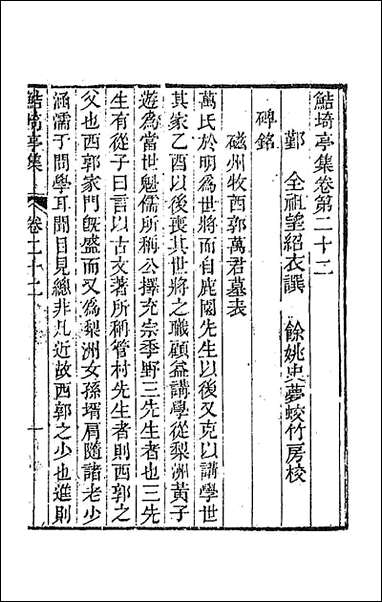 鮚埼亭集卷第二十二
鄞 全祖望紹衣譔 餘姚史夢蛟竹房校
碑銘
磁州牧西郭萬君墓表
萬氏於明為世將而自鹿園先生以後又克以講學世
其家乙酉以後喪其世將之職顧益講學從梨洲黃子
遊為當世魁儒所稱公擇充宗季野三先生者也三先
生有從子曰言以古文著所稱管村先生者則西郭之
父也西郭家門旣盛而又為梨洲女孫壻肩隨諸老少
涵濡于問學耳聞目見總非凡近故西郭之少也進則
鮚埼亭集
卷二十二
一